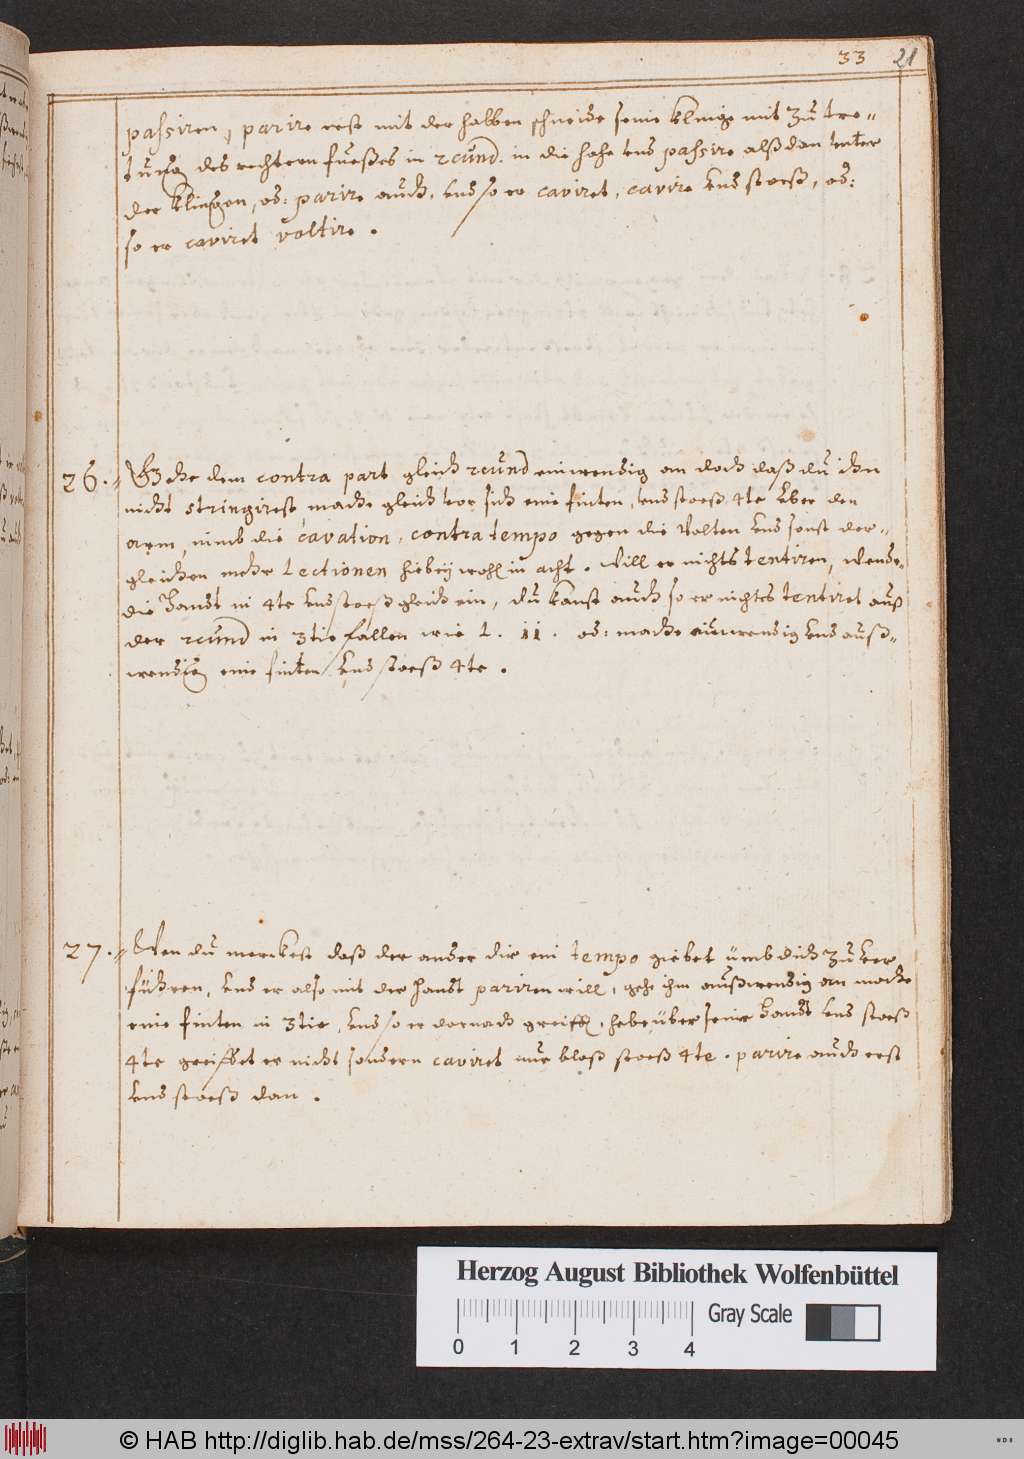 33 21
passiren, parire erst mit der halben schneide seine klinge mit zu tre-
tung des rechten fueßes in secund. in die höhe und passire alß dan unter
der klingen, od: parire auch, und so er caviret, cavire und stoeß, od:
so er caviret voltire.
26. Gehe dem contra part gleich secund einwendig an doch daß du ihn
nicht stringirest mache gleich vor sich eine finten, und stoeß 4te über den
arm, nimb die cavation, contratempo gegen die volten und sonst der-
gleichen mehr Lectionen hiebey wohl in acht. Will er nichts tentiren, wende
die Handt in 4te und stoeß gleich ein, du kanst auch so er nichts tentiret auß
der secund in 3tie fallen wie L. 11. od: mache einwendig und auß-
wendig eine finten und stoeß 4te.
27. Wen du merckest daß der ander dir ein tempo giebet umb dich zu ver
führen, und er also mit der handt pariren will, gehe ihm außwendig an mache
eine finten in 3tie, und so er darnach greifft, hebe über seine Handt und stoeß
4te greiffet er nicht sondern caviret nur bloß stoeß 4te. parire auch erst
und stoeß dan.
Herzog August Bibliothek Wolfenbüttel
Gray Scale
0 1 2 3 4
© HAB http://diglib.hab.de/mss/264-23-extrav/start.htm?image=00045